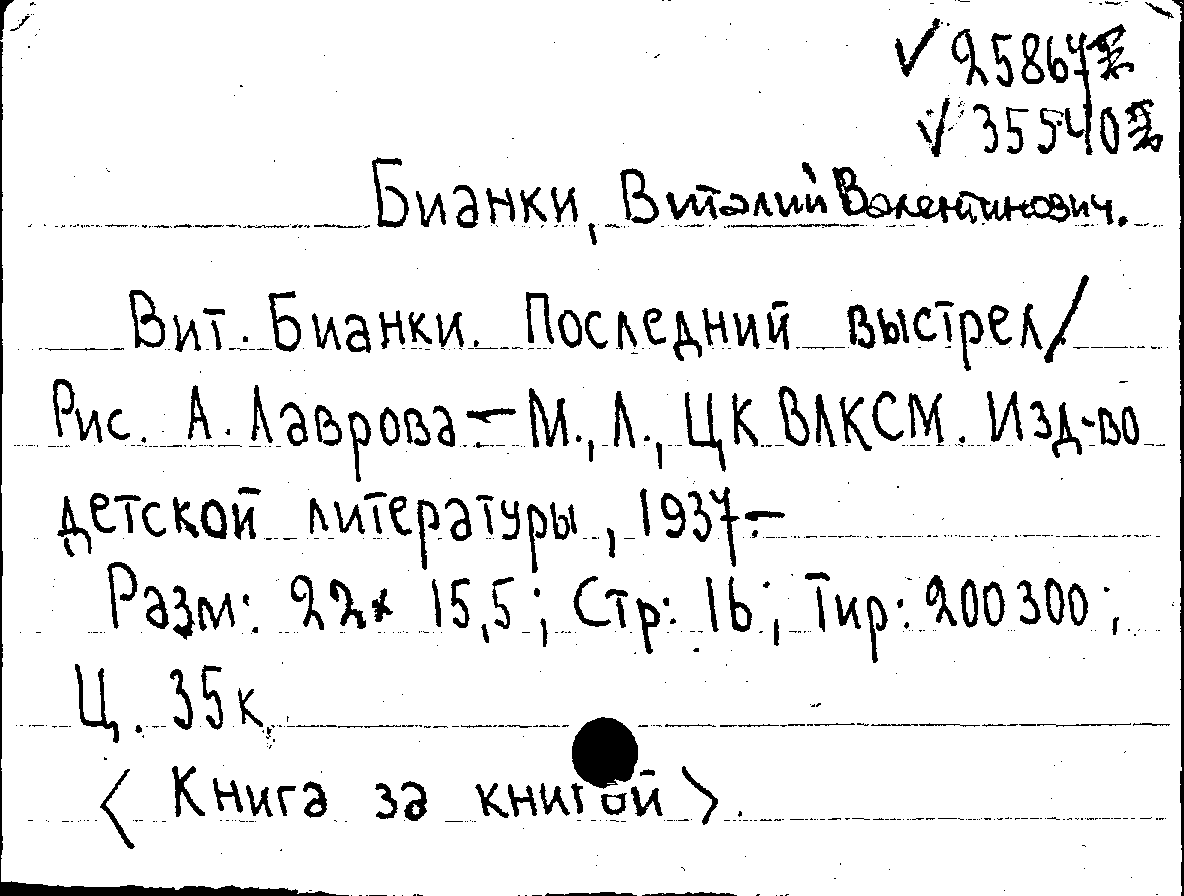 ✓ 25867
✓ 35540
Бианки, Виталий Валентинович.
Вит. Бианки. Последний выстрел/
Рис. А. Лаврова.— М., Л., ЦК ВЛКСМ. Изд-во
детской литературы, 1937.—
Разм: 22 x 15,5; Стр: 16; Тир: 200300;
Ц. 35к.
< Книга за книгой >.